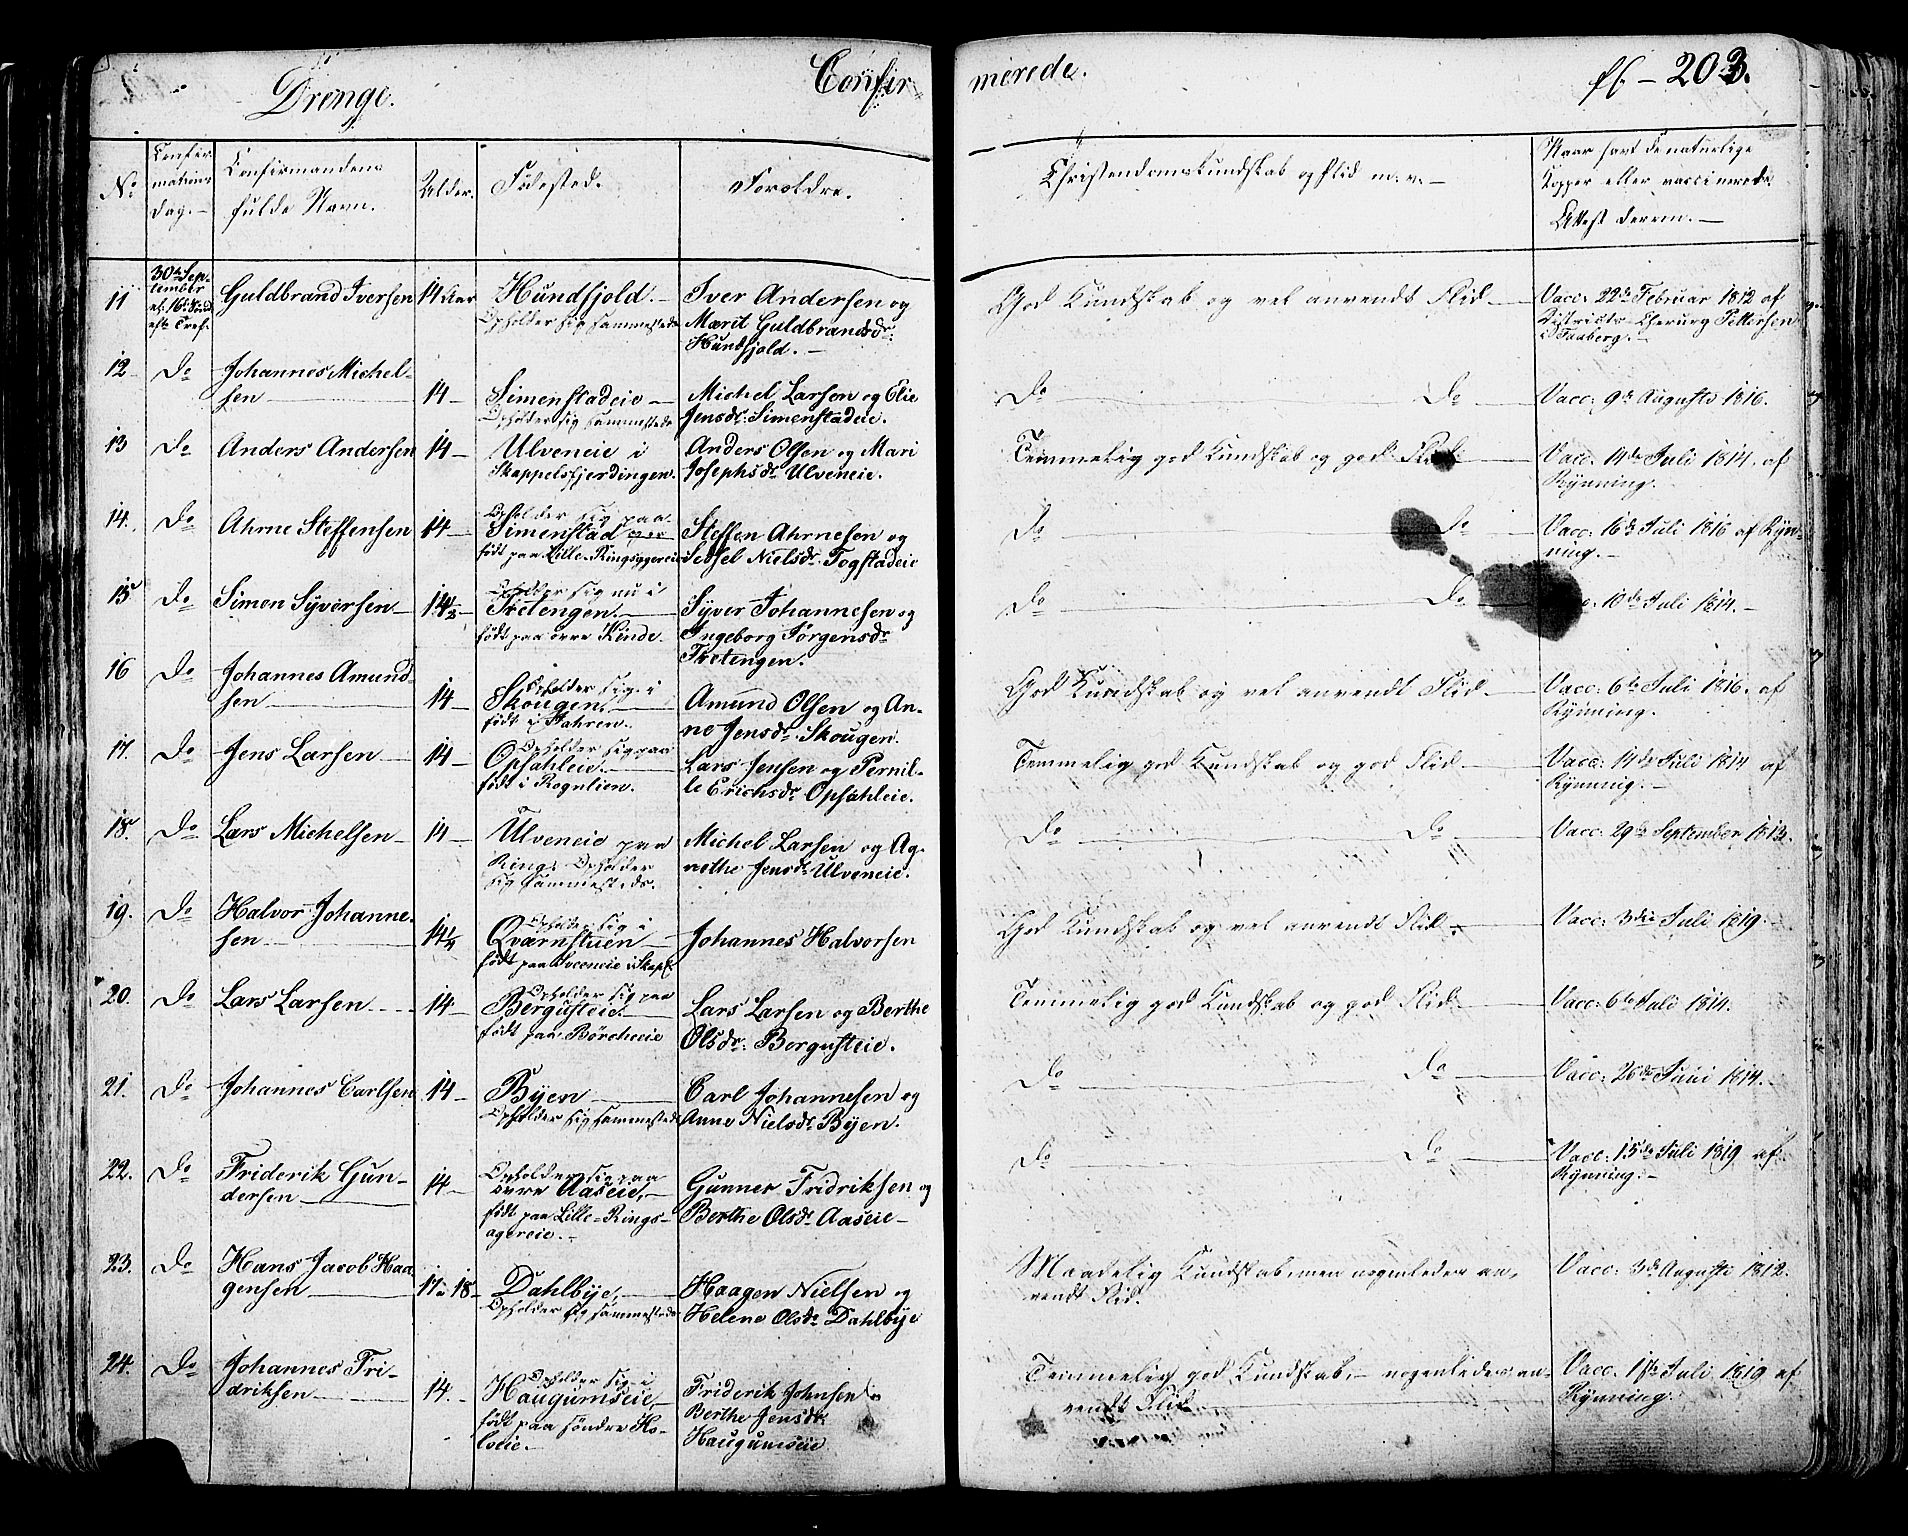 Drenge.
Confir
merede.
fl - 203.
No
Confir
mations
dag.
Confirmandens
fulde Navn.
Alder.
Fødested.
Forældre.
Christendomskundskab og Flid m. v. -
Naar havt de naturlige
Kopper eller vaccinerede
Attest derom. -
11
30te Sep-
tember
Guldbrand Iversen
14 Aar
Hundfjold. -
Opholder sig sammesteds
Iver Andersen og
Marit Guldbrandsdr:
Hundfjold. -
God Kundskab og vel anvendt Flid
Vacc: 22de Februar 1812 af
Districts-Cherurg Pettersen
i Faaberg. -
12
Do
Johannes Michel-
sen
14
Simenstadeie
Opholder sig sammesteds
Michel Larsen og Elie
Jensdr: Simenstadeie.
Do
Do
Vacc: 9de Augusto 1816.
13
Do
Anders Andersen
14
Ulveneie i
Skappelsfjerdingen.
Anders Olsen og Mari
Josephsdr Ulveneie.
Temmelig god Kundskab og god Flid
Vacc. 14de Juli 1814. af
Rynning.
14.
Do
Ahrne Steffensen
14
Opholder sig paa
Simenstad og er
født paa Lille-Ringsagereie
Steffen Ahrnesen og
Sidsel Nielsdr. Fogstadeie
Do
Do
Vacc: 16de Juli 1816 af Ryn-
ning. -
15
Do
Simen Syversen
14½
Opholder sig nu i
Tretengen
født paa øvre Kinde.
Syver Johannesen og
Ingeborg Jørgensdr
Tretengen.
Do
Do
10de Juli 1814. -
16
Do
Johannes Amund-
sen
14
Opholder sig i
Skougen,
født i Fahren.
Amund Olsen og An-
ne Jensdr. Skougen.
God Kundskab og vel anvendt Flid
Vacc: 6te Juli 1816. af
Rynning.
17.
Do
Jens Larsen
14
Opholder sig paa
Opsahleie.
født i Rognlien.
Lars Jensen og Pernil-
le Erichsdr Opsahleie.
Temmelig god Kundskab og god Flid
Vacc: 14de Juli 1814 af
Rynning. -
18.
Do
Lars Michelsen
14
Ulveneie paa
Rings. Opholder
sig sammesteds.
Michel Larsen og Ag-
nethe Jensdr. Ulveneie.
Do
Do
Vacc: 29de September 1813.
19.
Do
Halvor Johanne-
sen
14½
Opholder sig i
Qværnstuen
født paa Sveeneie i Skapf.
Johannes Halvorsen
God Kundskab og vel anvendt Flid
Vacc: 3die Juli 1819.
20.
Do
Lars Larsen
14
Opholder sig paa
Bergusteie.
født paa Børcheeie
Lars Larsen og Berthe
Olsdr: Bergusteie.
Temmelig god Kundskab og god Flid
Vacc: 6te Juli 1814.
21.
Do
Johannes Carlsen
14
Byen
Opholder sig sammesteds
Carl Johannesen og
Anne Nielsdr. Byen.
Do
Do
Vacc: 26de Juni 1814.
22.
Do
Friderik Gun-
dersen
14
Opholder sig paa
øvre Aaseie,
født paa Lille-Rings-
agereie. -
Gunner Fridriksen og
Berthe Olsdr Aaseie
Do
Do
Vacc: 15de Juli 1819 af
Rynning. -
23.
Do
Hans Jacob Haa-
gensen
17 a 18
Dahlbye,
Opholder sig sammesteds
Haagen Nielsen og
Helene Olsdr Dahlbye
Maadelig Kundskab, men nogenledes an-
vendt Flid.
Vacc: 3de Augusti 1812.
24.
Do
Johannes Fri-
driksen
14.
Opholder sig i
Haugumseie,
født paa søndre Ho-
loeie. -
Friderik Johnsen og
Berthe Jensdr:
Haugumseie
Temmelig god Kundskab, - nogenledes an-
vendt Flid
Vacc. 1ste Juli 1819 af
Rynning.